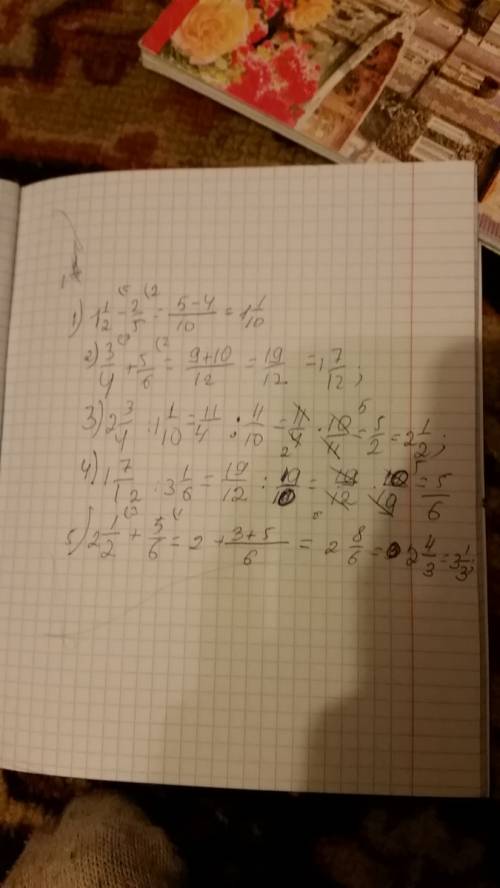 1) 1 1/2 - 2/5 = (5-4)/10 = 1 1/10
2) 3/4 + 5/6 = (9+10)/12 = 19/12 = 1 7/12;
3) 2 3/4 : 1 1/10 = 11/4 : 11/10 = 11/4 · 10/11 = 5/2 = 2 1/2;
4) 1 7/12 : 3 1/6 = 19/12 : 19/10 = 19/12 · 10/19 = 5/6
5) 2 1/2 + 5/6 = 2 + (3+5)/6 = 2 8/6 = 2 4/3 = 3 1/3;